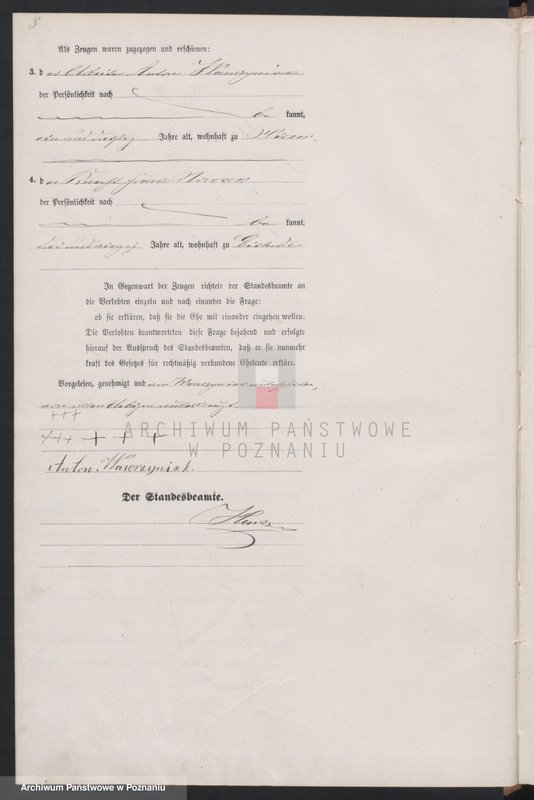 8
Als Zeugen waren zugezogen und erschienen:
3. der Arbeiter Anton Wawrzyniak
der Persönlichkeit nach
be kannt,
ein und dreißig Jahre alt, wohnhaft zu
4. der Knecht Franz Nowak
der Persönlichkeit nach
be kannt,
Jahre alt, wohnhaft zu
In Gegenwart der Zeugen richtete der Standesbeamte an
die Verlobten einzeln und nach einander die Frage:
ob sie erklären, daß sie die Ehe mit einander eingehen wollen.
Die Verlobten beantworteten diese Frage bejahend und erfolgte
hierauf der Ausspruch des Standesbeamten, daß er sie nunmehr
kraft des Gesetzes für rechtmäßig verbundene Eheleute erkläre.
Vorgelesen, genehmigt und von Wawrzyniak unterschrieben,
von den Übrigen unterkreuzt.
+++
+++ + + +
Anton Wawrzyniak.
Der Standesbeamte.
ARCHIWUM PAŃSTWOWE
W POZNANIU
Archiwum Państwowe w Poznaniu